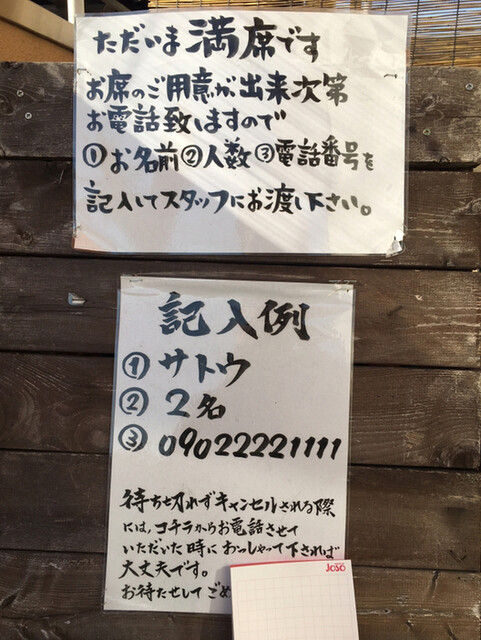 ただいま満席です
お席のご用意が出来次第
お電話致しますので
①お名前②人数③電話番号を
記入してスタッフにお渡し下さい。
記入例
① サトウ
② 2名
③ 09022221111
待ち切れずキャンセルされる際
には、コチラからお電話させて
いただいた時におっしゃって下されば
大丈夫です。
お待たせしてごめ
JOSO